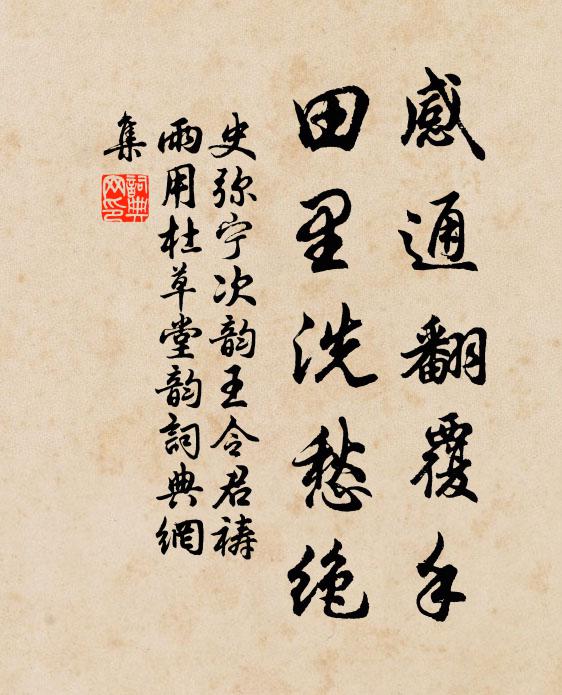 感通翻覆手
田里洗愁绝
史弥宁次韵王令君祷
雨用杜草堂韵詞典網
集
詞典网印